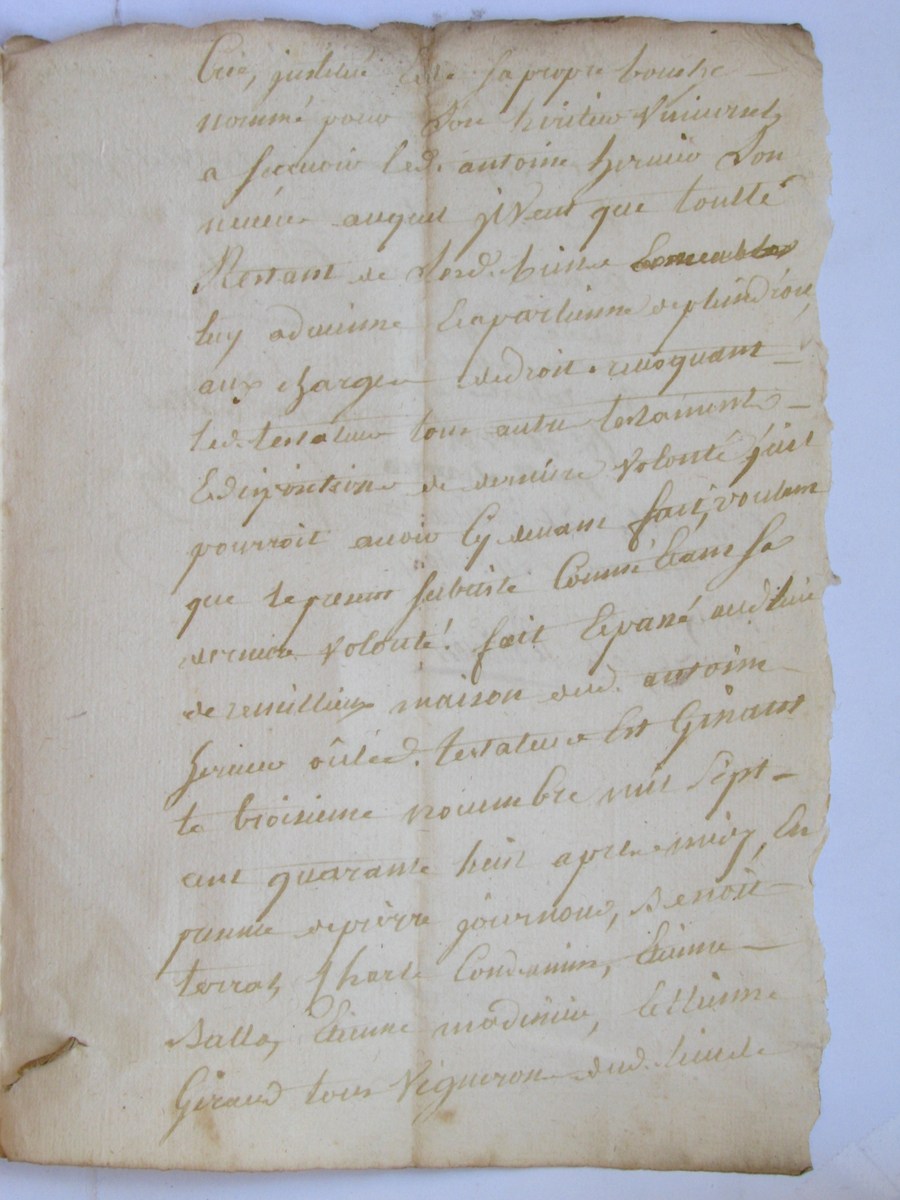 Crée, institué et de sa propre bouche
nommé pour son heritier Universel
a sçavoir led. antoine son
neveu auquel il Veut que toutte
Restant de sesd. biens
luy advienne & apartienne de plein droit,
aux charges de droit, revoquant
led. testateur tous autre testament
& dispositions de derniere Volonté qu'il
pourroit avoir Cy devant fait, voulant
que le present subsiste Comme Etant sa
derniere Volonté. fait & passé audit lieu
de maison dud. antoine
où led. testateur Est Gisant
le troisieme novembre mil sept
cent quarante huit apres midy, En
presence de pierre journoud, Benoit
terrat, Charle Condamin, Etienne
Balla, Etienne & Etienne
Giraud tous Vigneron dud. lieu de